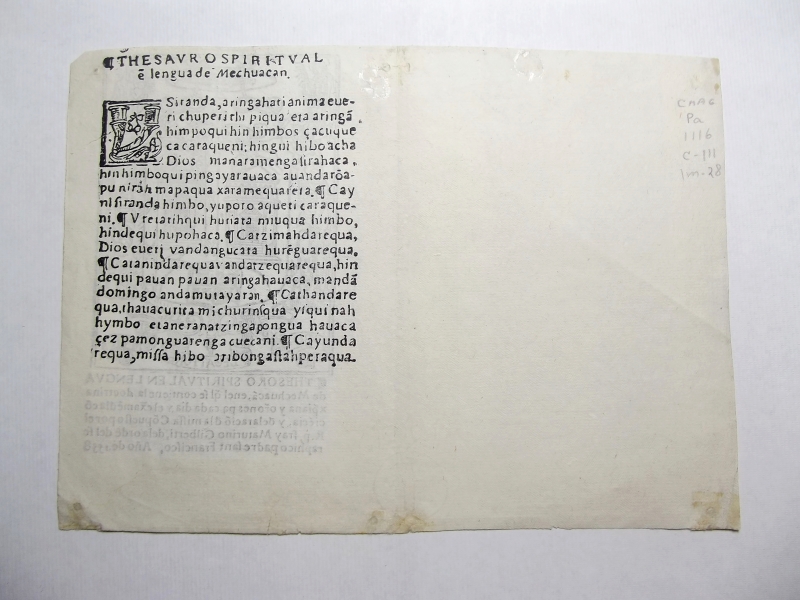 ¶THESAVRO SPIRITVAL
ẽ lengua de Mechuacan.
Siranda, aringahati anima eue-
ri chuperi thi piqua eta aringã
himpoqui hin himbos çacuque
ca caraqueni; hingui hiboacha
Dios manaramengasirahaca,
hin himboqui pingayarauaca auandarõa-
pu nirah mapaqua xaramequareta. ¶ Cay
ni siranda himbo, yuporo aqueti caraque-
ni. ¶ Vretatihqui huriata miuqua himbo,
hindequi hupohaca. ¶ Catzimahdarequa,
Dios eueri vandangucata hurẽguarequa.
¶ Catanindarequa vandatzequarequa, hin
dequi pauan pauan aringahauaca, mandã
domingo andamutayaran. ¶ Cathandare
qua, thauacurita michurinsqua yiqui nah
hymbo etaneranatzingapongua hauaca
çez pamonguarenga cuecani. ¶ Cayunda
requa, missa hibo aribongastahperaqua.
¶ THESORO SPIRITVAL EN LENGVA
de Mechuacã, enel q̃l se contiene la doctrina
R. p. fray Maturino Gilberti, dela orde del se
raphico padre sant Francisco, Año de 1558
CMAG
Pa
1116
C-111
Im-28